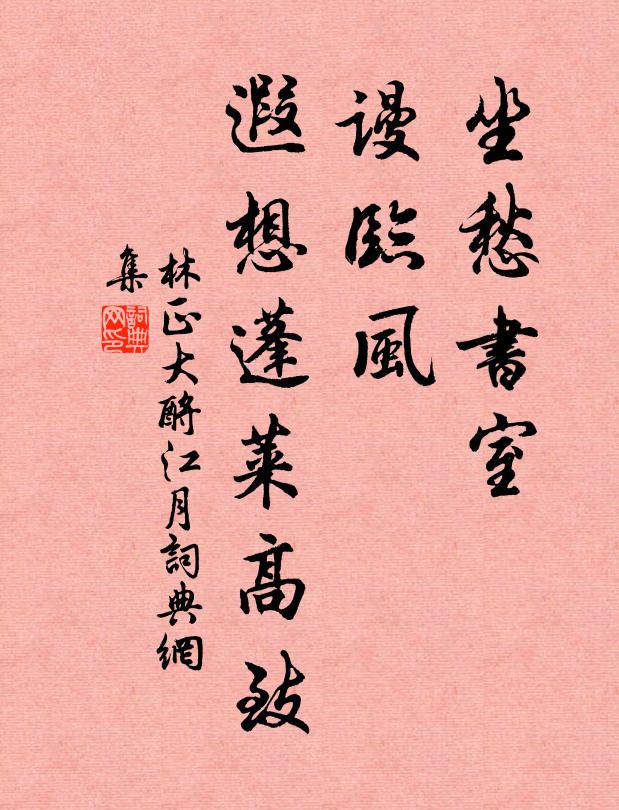 坐愁書室
謾臨風
遐想蓬萊高致
林正大酹江月詞典網
集
詞典
网印